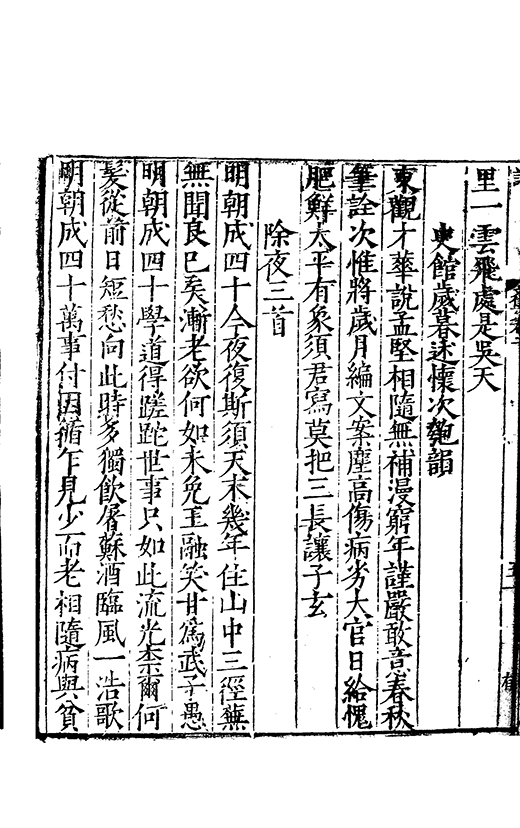 里一雲飛處是吳天
史館歲暮述懷次勉韻
東觀才華說孟堅相隨無補漫窮年謹嚴敢意春秋
筆詮次惟將歲月編文案塵高傷病劣大官日給愧
肥鮮太平有象須君寫莫把三長讓子玄
除夜三首
明朝成四十今夜復斯須天末幾年住山中三徑蕪
無聞良已矣漸老欲何如未免王融笑甘爲武子愚
明朝成四十學道得蹉跎世事只如此流光柰爾何
髮從前日短愁向此時多獨飲屠蘇酒臨風一浩歌
明朝成四十萬事付因循乍見少而老相隨病與貧